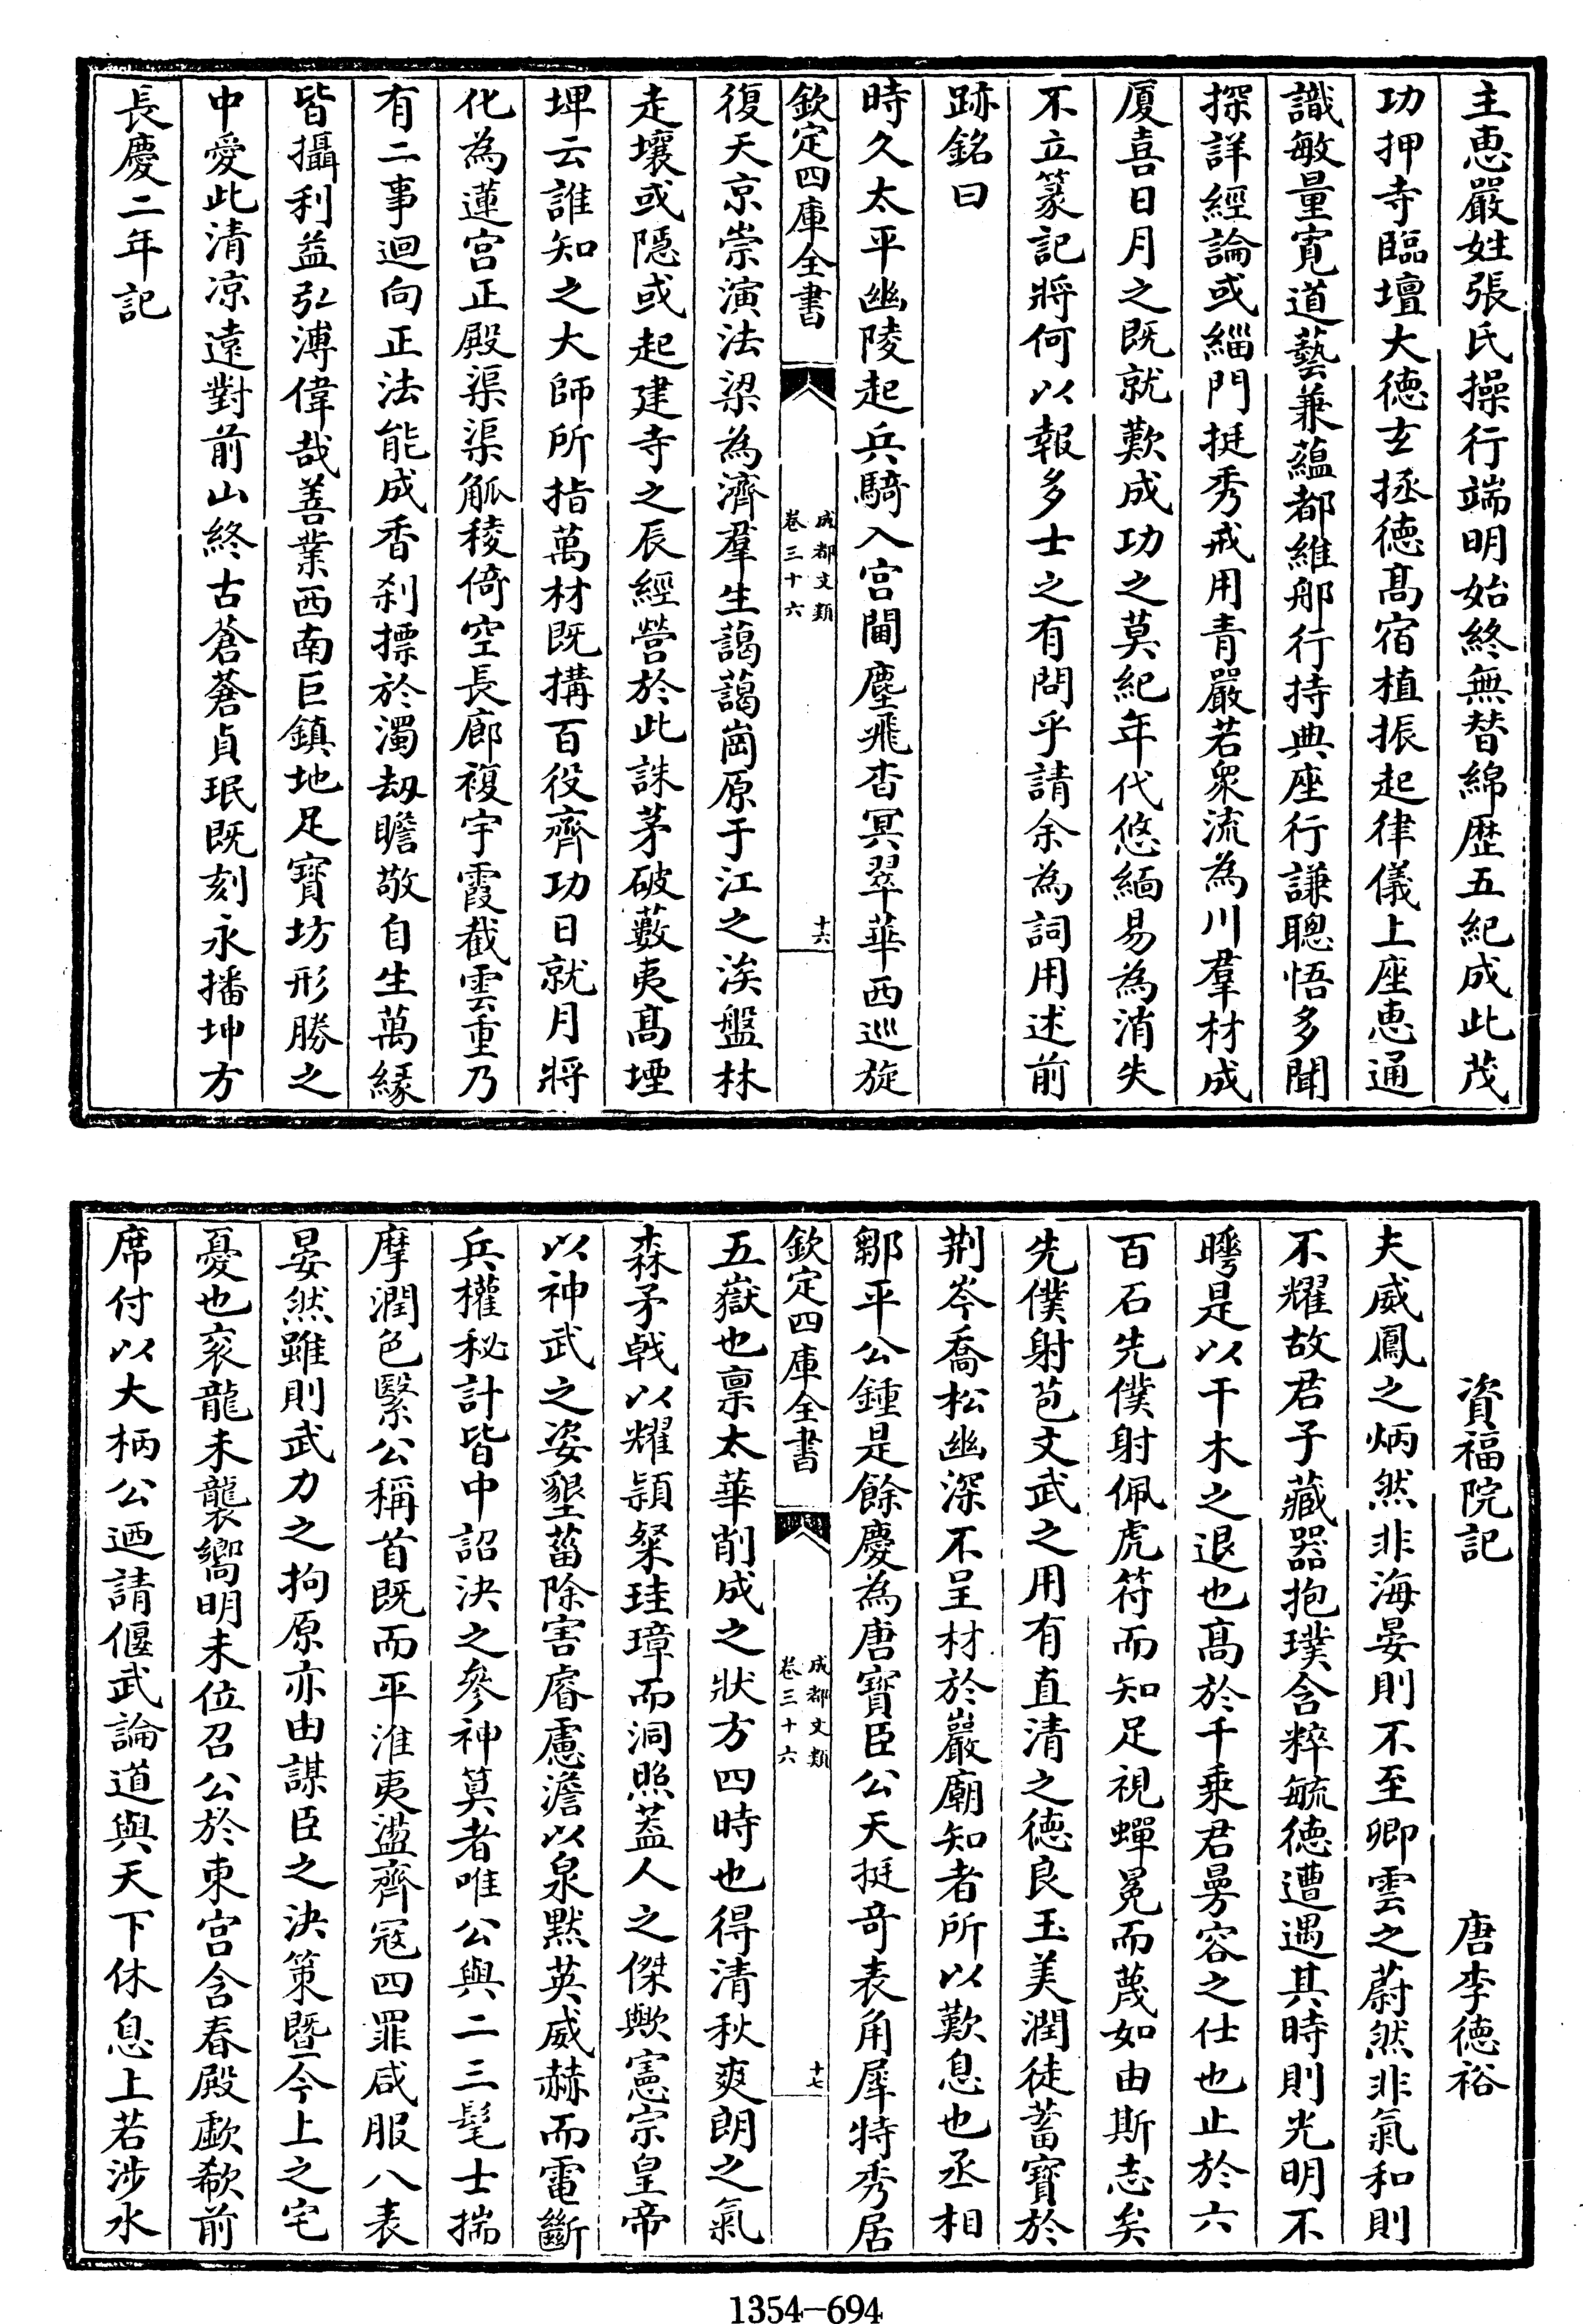 主恵嚴姓張氏操行端明始終無替綿歴五紀成此茂
功押寺臨壇大徳玄拯德髙宿植振起律儀上座恵通
識敏量寛道藝兼蘊都維郍行持典座行謙聰悟多聞
探詳經論或緇門挺秀戒用青嚴若衆流為川羣材成
厦喜日月之既就歎成功之莫紀年代悠緬易為消失
不立篆記將何以報多士之有問乎請余為詞用述前
跡銘曰
時久太平幽陵起兵騎入宫閫塵飛杳冥翠華西巡旋
欽定四庫全書
成都文類
卷三十六
十六
復天京崇演法梁為濟羣生藹藹崗原于江之涘盤林
走壤或隠或起建寺之辰經營於此誅茅破藪夷髙堙
埤云誰知之大師所指萬材既搆百役齊功日就月將
化為蓮宫正殿渠渠觚稜倚空長廊複宇霞截雲重乃
有二事迴向正法能成香刹摽於濁刼瞻敬自生萬縁
皆攝利益弘溥偉哉善業西南巨鎮地足寳坊形勝之
中愛此清凉遠對前山終古蒼蒼貞珉既刻永播坤方
長慶二年記
資福院記 唐李德裕
夫威鳳之炳然非海晏則不至卿雲之蔚然非氣和則
不耀故君子藏器抱璞含粹毓徳遭遇其時則光明不
䁱是以干木之退也髙於千乘君曼容之仕也止於六
百石先僕射佩虎符而知足視蟬冕而蔑如由斯志矣
先僕射苞文武之用有直清之徳良玉美潤徒蓄寳於
荆岑喬松幽深不呈材於巖廟知者所以歎息也丞相
鄒平公鍾是餘慶為唐寳臣公天挺竒表角犀特秀居
欽定四庫全書
成都文類
卷三十六
十七
五嶽也禀太華削成之狀方四時也得清秋爽朗之氣
森矛戟以耀頴粲珪璋而洞照葢人之傑歟憲宗皇帝
以神武之姿墾菑除害睿慮澹以泉黙英威赫而電斷
兵權秘計皆中詔決之參神筭者唯公與二三髦士揣
摩潤色繄公稱首既而平淮夷盪齊冦四罪咸服八表
晏然雖則武力之拘原亦由謀臣之決策暨今上之宅
憂也衮龍未襲嚮明未位召公於東宫含春殿歔欷前
席付以大柄公迺請偃武論道與天下休息上若涉水
1354-694